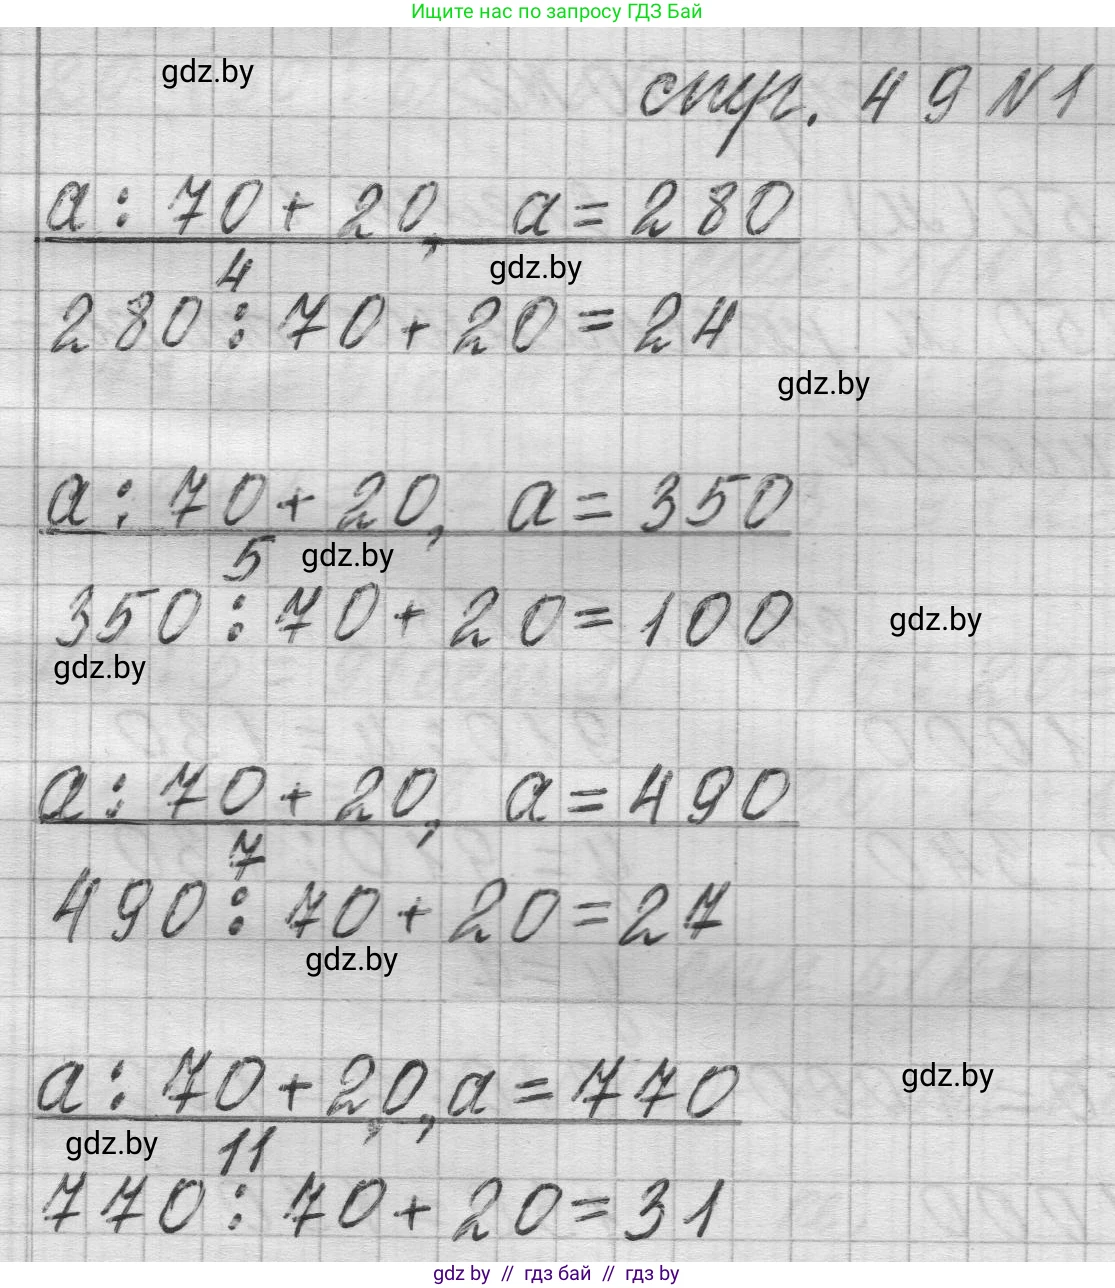 Ищите нас по запросу ГДЗ Бай
gdz.by
стр. 49 №1
a : 70 + 20, a = 280
gdz.by
4
280 : 70 + 20 = 24
gdz.by
a : 70 + 20, a = 350
5
gdz.by
350 : 70 + 20 = 100
gdz.by
gdz.by
a : 70 + 20, a = 490
7
490 : 70 + 20 = 27
gdz.by
a : 70 + 20, a = 770
gdz.by
gdz.by
11
770 : 70 + 20 = 31
gdz by // гдз бай // gdz by